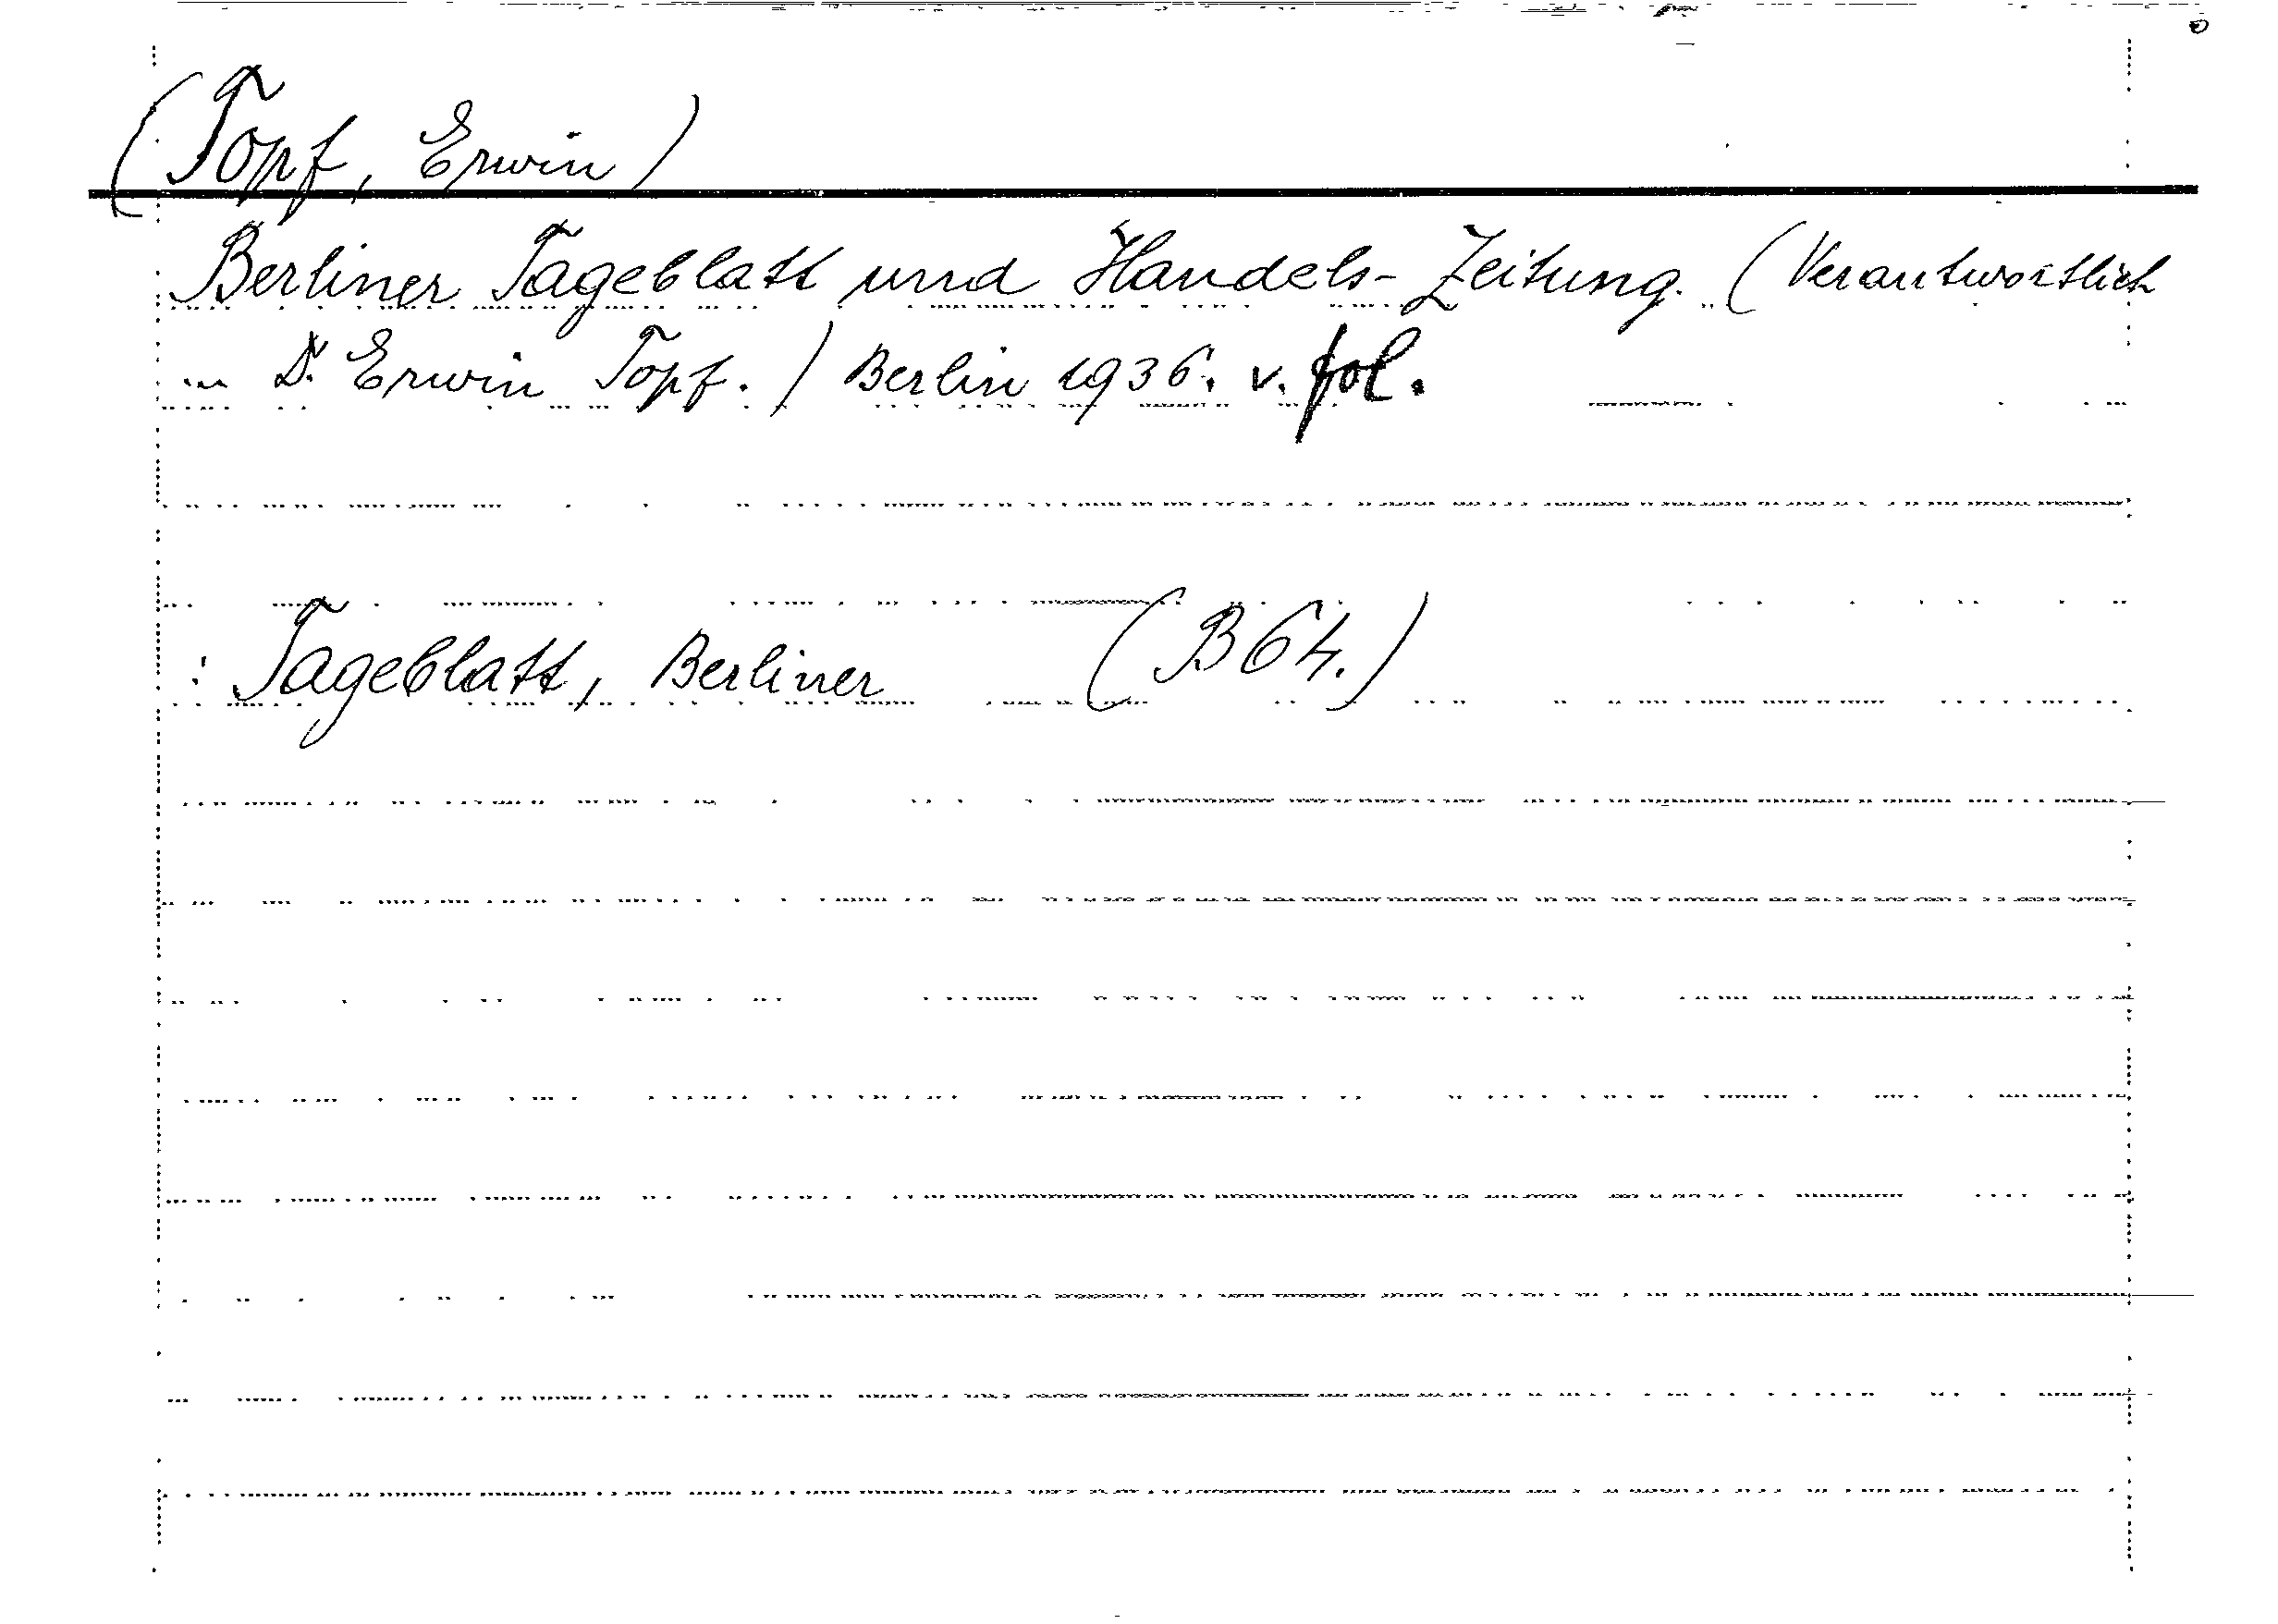 (Topf, Erwin)
Berliner Tageblatt und Handels-Zeitung. (Verantwortlich
... Dr. Erwin Topf.) Berlin 1936. v. fol.
: Tageblatt, Berliner (B 64.)